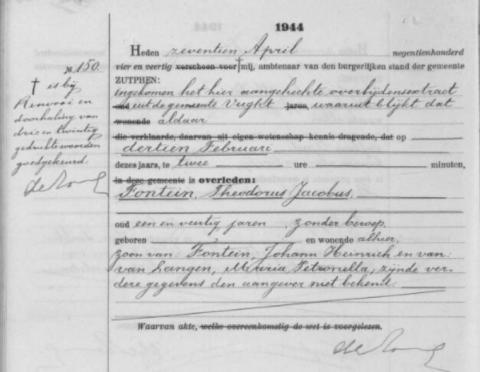 1944
Heden zeventien April negentienhonderd
No 150.
vier en veertig verscheen voor † mij, ambtenaar van den burgerlijken stand der gemeente
ZUTPHEN:
† is bij
ingekomen het hier aangehechte overlijdensextract
Renvooi en
uit de gemeente Vught jaren, waaruit blijkt dat
doorhaling van
wonende aldaar
drie en twintig
die verklaarde, daarvan uit eigen wetenschap kennis dragende, dat op
gedrukte woorden
dertien Februari
goedgekeurd.
dezes jaars, te twee ure minuten,
de
in deze gemeente is overleden:
Fontein, Theodorus Jacobus,
oud een en veertig jaren, zonder beroep,
geboren en wonende alhier,
zoon van: Fontein, Johann Heinrich en van:
van Langen, Maria Petronella, zijnde ver-
dere gegevens den aangever niet bekend.
Waarvan akte, welke overeenkomstig de wet is voorgelezen.
de